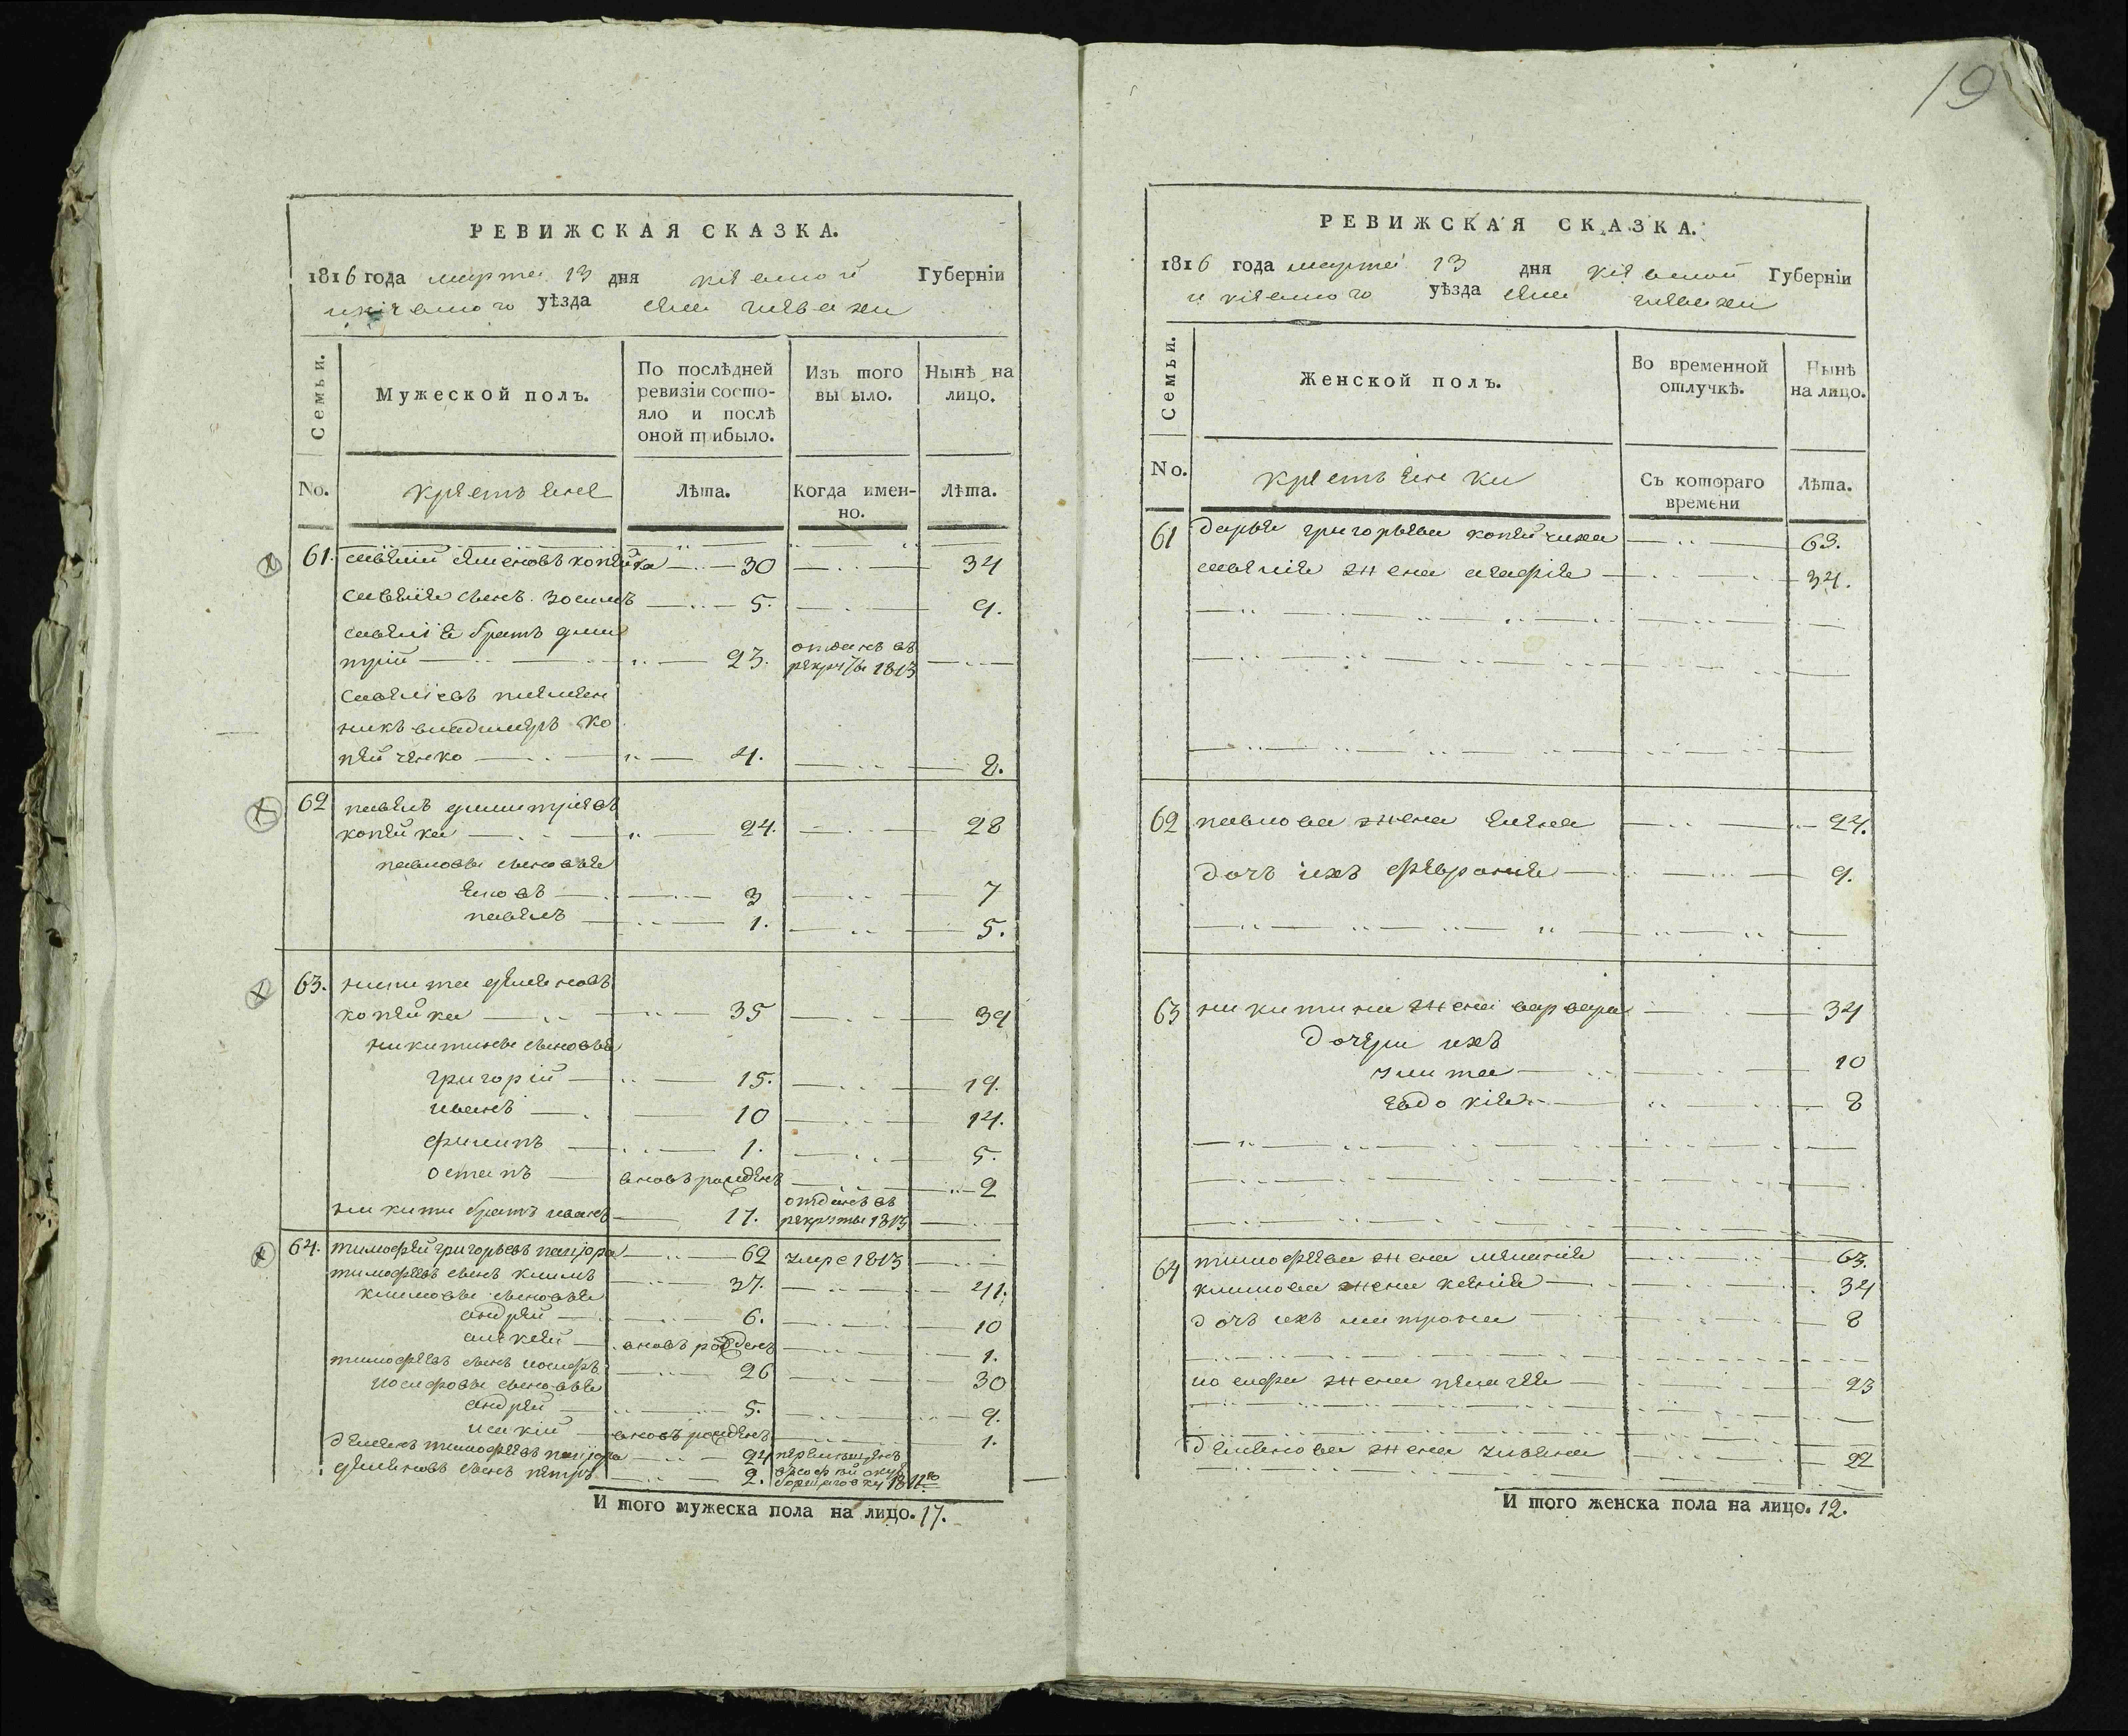 19
РЕВИЖСКАЯ СКАЗКА.
1816 года марта 13 дня Кіевской Губерніи
и Кіевского уѣзда села Глевахи
Семьи.
Мужеской полъ.
По послѣдней ревизіи состо-
яло и послѣ
оной прибыло.
Изъ того
выбыло.
Нынѣ на
лицо.
No.
крестьяне
Лѣта.
Когда имен-
но.
Лѣта.
61. Савелий Семеновъ Копейка 30 34
Савелия сынъ Зосимъ 5. 9.
Савелія братъ Дми
трій 23. отданъ въ рекруты 1813
Савеліевъ племен
никъ Владимеръ Ко
пейченко 4. 8.
62 Павелъ Дмитріевъ
Копейка 24. 28
Павловы сыновья
Яковъ 3 7
Павелъ 1. 5.
63. Никита Демяновъ
Копейка 35 39
Никитины сыновья
Григорій 15. 19.
Иванъ 10 14.
Филипъ 1. 5.
Остапъ вновь рожденъ 2
Никиты братъ Иванъ 17. отданъ въ рекруты 1813
64. Тимофей Григорьевъ 62 умре 1813
Тимофеевъ сынъ Климъ 37. 41.
Климовы сыновья
Андрей 6. 10
Алексей вновь рожденъ 1.
Тимофеевъ сынъ Иосифъ 26 30
Иосифовы сыновья
Андрей 5. 9.
Исакій вновь рожденъ 1.
Демянъ Тимофеевъ 24 перемещенъ
Демяновъ сынъ Петръ 2. Борщаговку 1811го
И того мужеска пола на лицо. 17.
РЕВИЖСКАЯ СКАЗКА.
1816 года марта 13 дня Кіевской Губерніи
и Кіевского уѣзда села Глевахи
Семьи.
Женской полъ.
Во временной
отлучкѣ.
Нынѣ
на лицо.
No.
крестьянки
Съ котораго
времени
Лѣта.
61 Дарья Григорьева Копейчиха 63.
Савелія жена Агафія 34.
62 Павлова жена Елена 24.
дочь ихъ Феврония 9.
63 Никитина жена Варвара 34
дочери ихъ
Улита 10
Евдокія 8
64 Тимофеева жена Мелания 63.
Климова жена Ксения 34
дочь ихъ Митрона 8
Иосифа жена Пелагея 23
Демянова жена Улияна 22
И того женска пола на лицо. 12.